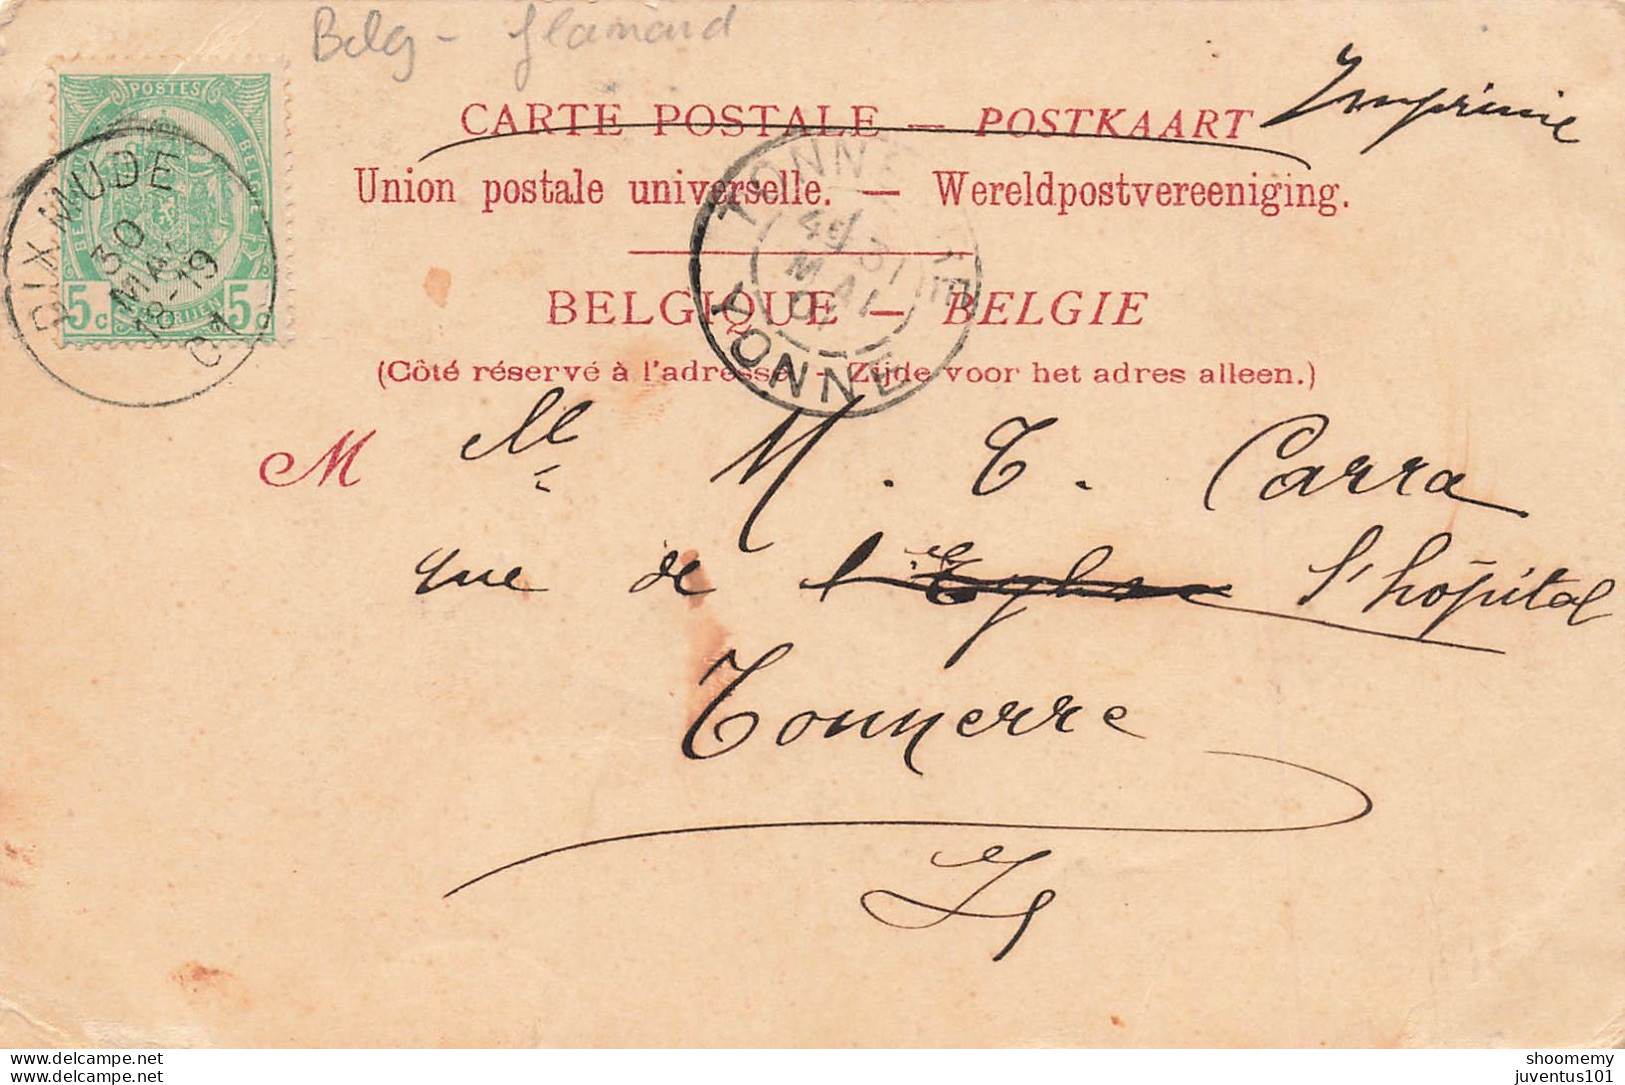 Belg - flamand
Imprimé
CARTE POSTALE — POSTKAART
Union postale universelle. — Wereldpostvereeniging.
BELGIQUE — BELGIE
(Côté réservé à l'adresse - Zijde voor het adres alleen.)
POSTES
5c 5c
DIXMUDE
30
MAI
18-19
01
TONNERRE
31
MAI
01
YONNE
M lle M. T. Carra
rue de l'Eglise l'hôpital
Tonnerre
delcampe.net
shoomemy
juventus101